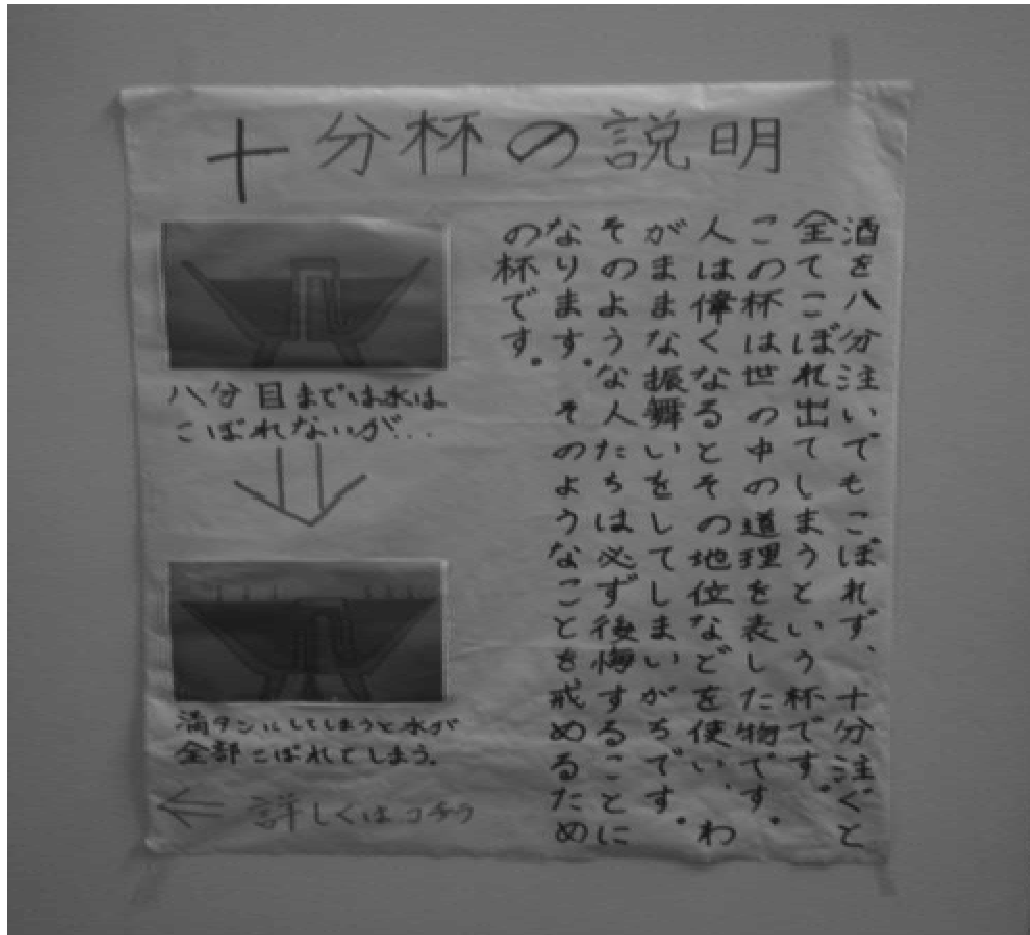 十分杯の説明
酒を八分注いでもこぼれず、十分注ぐと
全てこぼれ出てしまうという杯です。
この杯は世の中の道理を表した物です。
人は偉くなるとその地位などを使い、わ
がままな振舞いをしてしまいがちです。
そのような人たちは必ず後悔することに
なります。そのようなことを戒めるため
の杯です。
八分目までは水は
こぼれないが...
満タンにしてしまうと水が
全部こぼれてしまう。
← 詳しくはコチラ